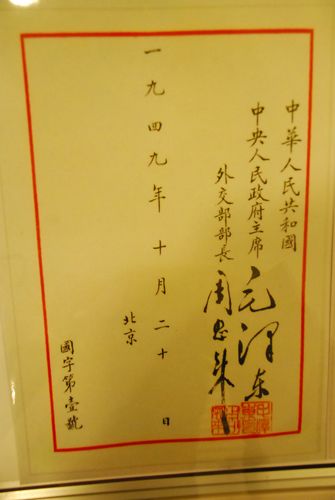 中華人民共和國
中央人民政府主席 毛澤東
外交部部長 周恩來
一九四九年十月二十日
北京
國字第壹號